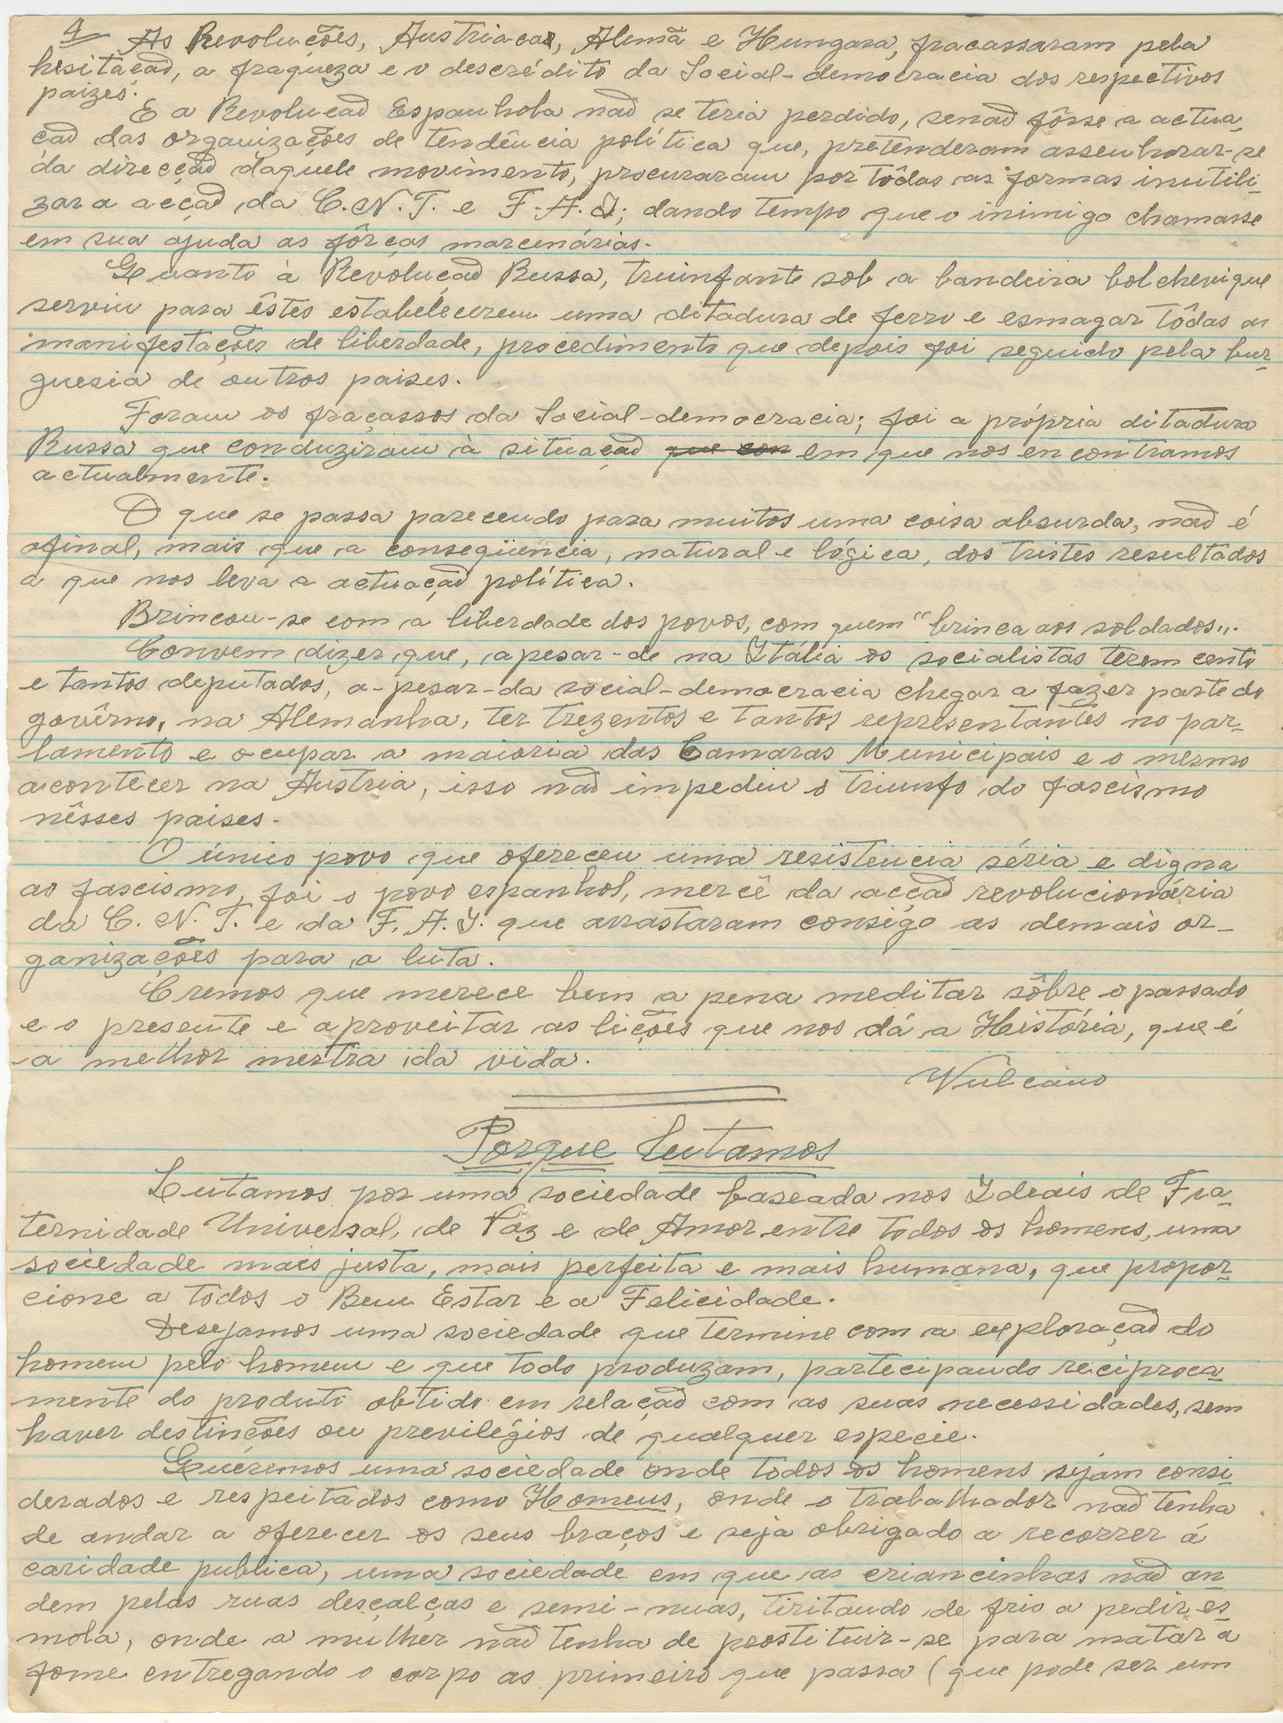 4
As Revoluções, Austriacas, Alemã e Hungara, fracassaram pela
hesitação, a fraqueza e o descrédito da Social-democracia dos respectivos
paizes.
E a Revolução Espanhola não se teria perdido, senão fôsse a actua-
ção das organizações de tendência política que, pretenderam assenhorar-se
da direcção daquele movimento, procuraram por tôdas as formas inutili-
zar a acção da C.N.T. e F.A.I; dando tempo que o inimigo chamasse
em sua ajuda as fôrças marcenárias.
Quanto à Revolução Russa, truinfante sob a bandeira bolchevique
serviu para êstes estabelecerem uma ditadura de ferro e esmagar tôdas as
manifestações de liberdade, procedimento que depois foi seguido pela bur-
guesia de outros paises.
Foram os fracassos da Social-democracia; foi a própria ditadura
Russa que conduziram à situação que con em que nos encontramos
actualmente.
O que se passa parecendo para muitos uma coisa absurda, não é
afinal, mais que a conseqüencia, natural e lógica, dos tristes resultados
a que nos leva a actuação política.
Brincou-se com a liberdade dos povos, com quem "brinca aos soldados...
Convem dizer que, apesar-de na Itália os socialistas terem cento
e tantos deputados, a-pesar-da social-democracia chegar a fazer parte do
govêrno, na Alemanha, ter trezentos e tantos representantes no par-
lamento e ocupar a maioria das Camaras Municipais e o mesmo
acontecer na Austria, isso não impediu o triunfo do fascismo
nêsses paises.
O único povo que ofereceu uma resistencia séria e digna
ao fascismo, foi o povo espanhol, mercê da acção revolucionária
da C. N. T. e da F. A. I. que arrastaram consigo as demais or-
ganizações para a luta.
Cremos que merece bem a pena meditar sôbre o passado
e o presente e aproveitar as lições que nos dá a História, que é
a melhor mestra da vida.
Vulcano
Porque lutamos
Lutamos por uma sociedade baseada nos Ideais de Fra-
ternidade Universal, de Paz e de Amor entre todos os homens, uma
sociedade mais justa, mais perfeita e mais humana, que propor-
cione a todos o Bem Estar e a Felicidade.
Desejamos uma sociedade que termine com a exploração do
homem pelo homem e que todo produzam, partecipando reciproca-
mente do produti obtido em relação com as suas necessidades, sem
haver destinções ou previlégios de qualquer especie.
Queremos uma sociedade onde todos os homens sejam consi-
derados e respeitados como Homens, onde o trabalhador não tenha
de andar a oferecer os seus braços e seja obrigado a recorrer á
caridade publica, uma sociedade em que as criancinhas não an-
dem pelas ruas descalças e semi-nuas, tiritando de frio a pedir es-
mola, onde a mulher não tenha de prostituir-se para matar a
fome entregando o corpo ao primeiro que passa (que pode ser um